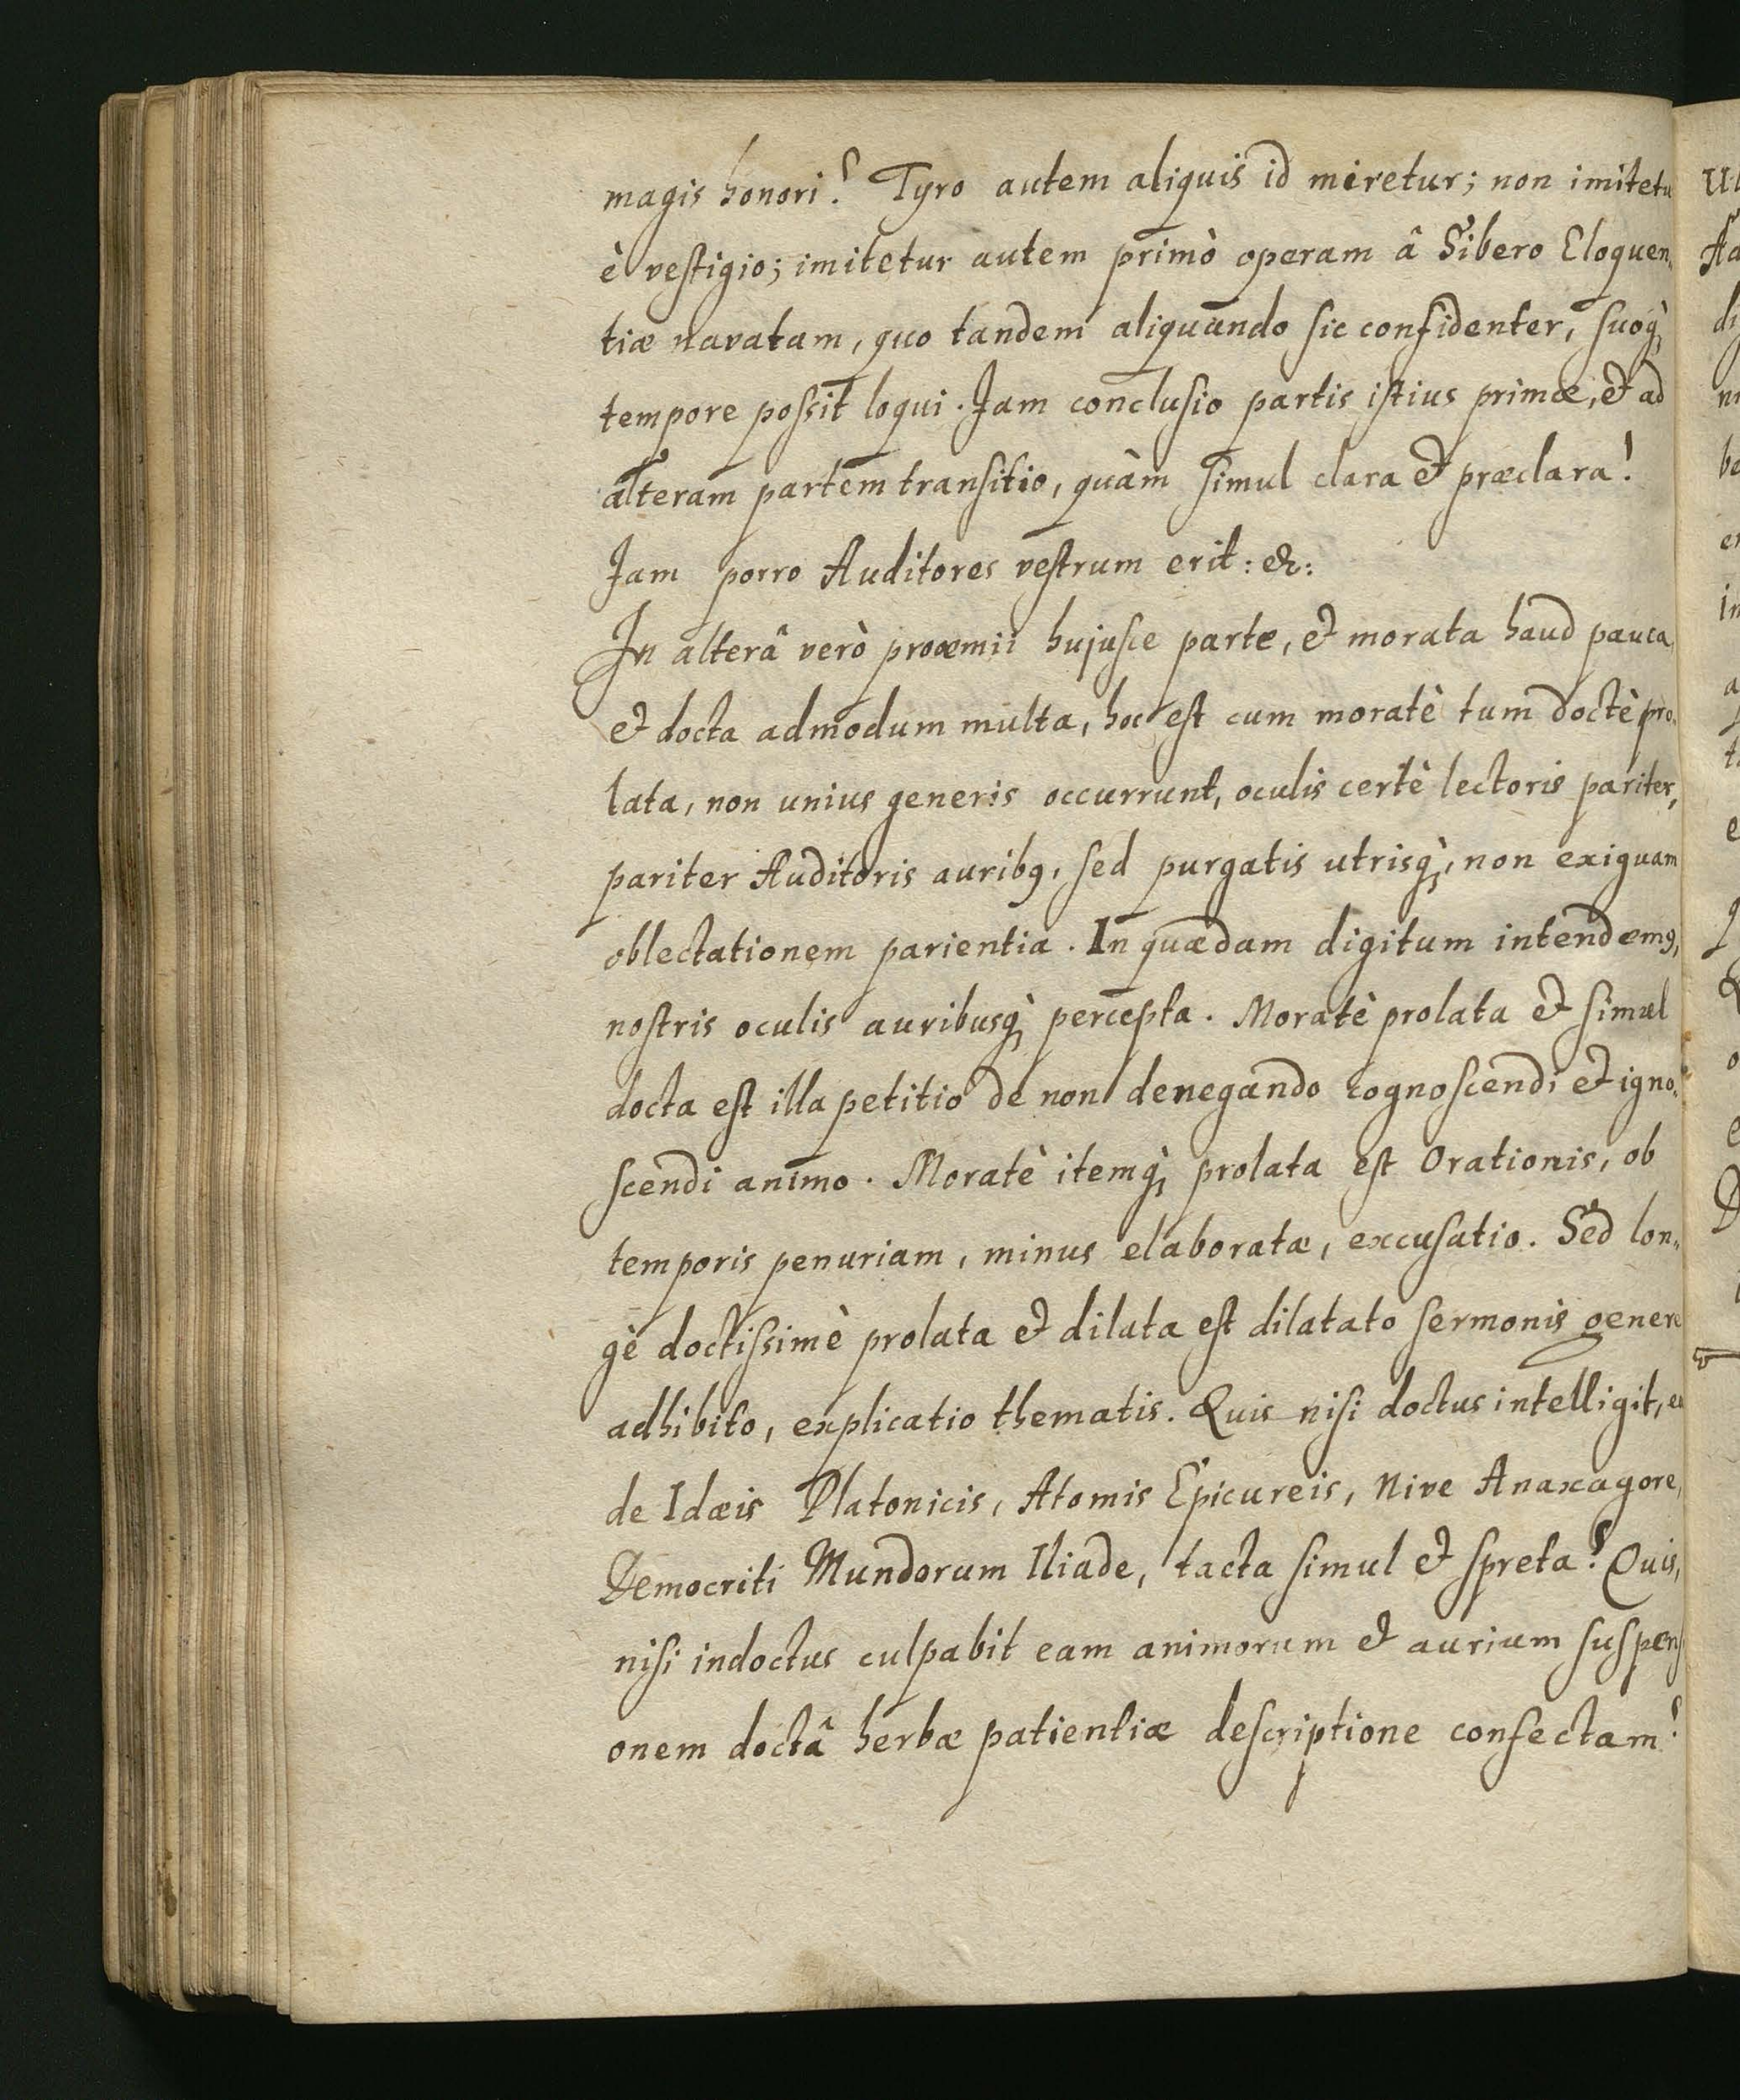 magis honori? Tyro autem aliquis id miretur; non imitetu
è vestigio; imitetur autem primò operam â Sibero Eloquen,,
tiæ navatam, quo tandem aliquando sic confidenter, suoq;
tempore possit loqui. Jam conclusio partis istius primæ, et ad
alteram partem transitio, quàm simul clara et præclara!
Jam porro Auditores vestrum erit: &:
In alterâ verò prooemii hujusce parte, et morata haud pauca,
et docta admodum multa, hoc est cum moratè tum doctè pro,,
lata, non unius generis occurrunt, oculis certè lectoris pariter,
pariter Auditoris auribꝰ, sed purgatis utrisq;, non exiguam
oblectationem parientia. In quædam digitum intendemꝰ,
nostris oculis auribusq; percepta. Moratè prolata et simul
docta est illa petitio de non denegando cognoscendi et igno,,
scendi animo. Moratè itemq; prolata est Orationis, ob
temporis penuriam, minus elaboratæ, excusatio. Sed lon,,
gè doctissimè prolata et dilata est dilatato sermonis genere
adhibito, explicatio thematis. Quis nisi doctus intelligit, ea
de Idæis Platonicis, Atomis Epicureis, Nive Anaxagoræ,
Democriti Mundorum Iliade, tacta simul et spreta? Quis,
nisi indoctus culpabit eam animorum et aurium suspens
onem doctâ herbæ patientiæ descriptione confectam?